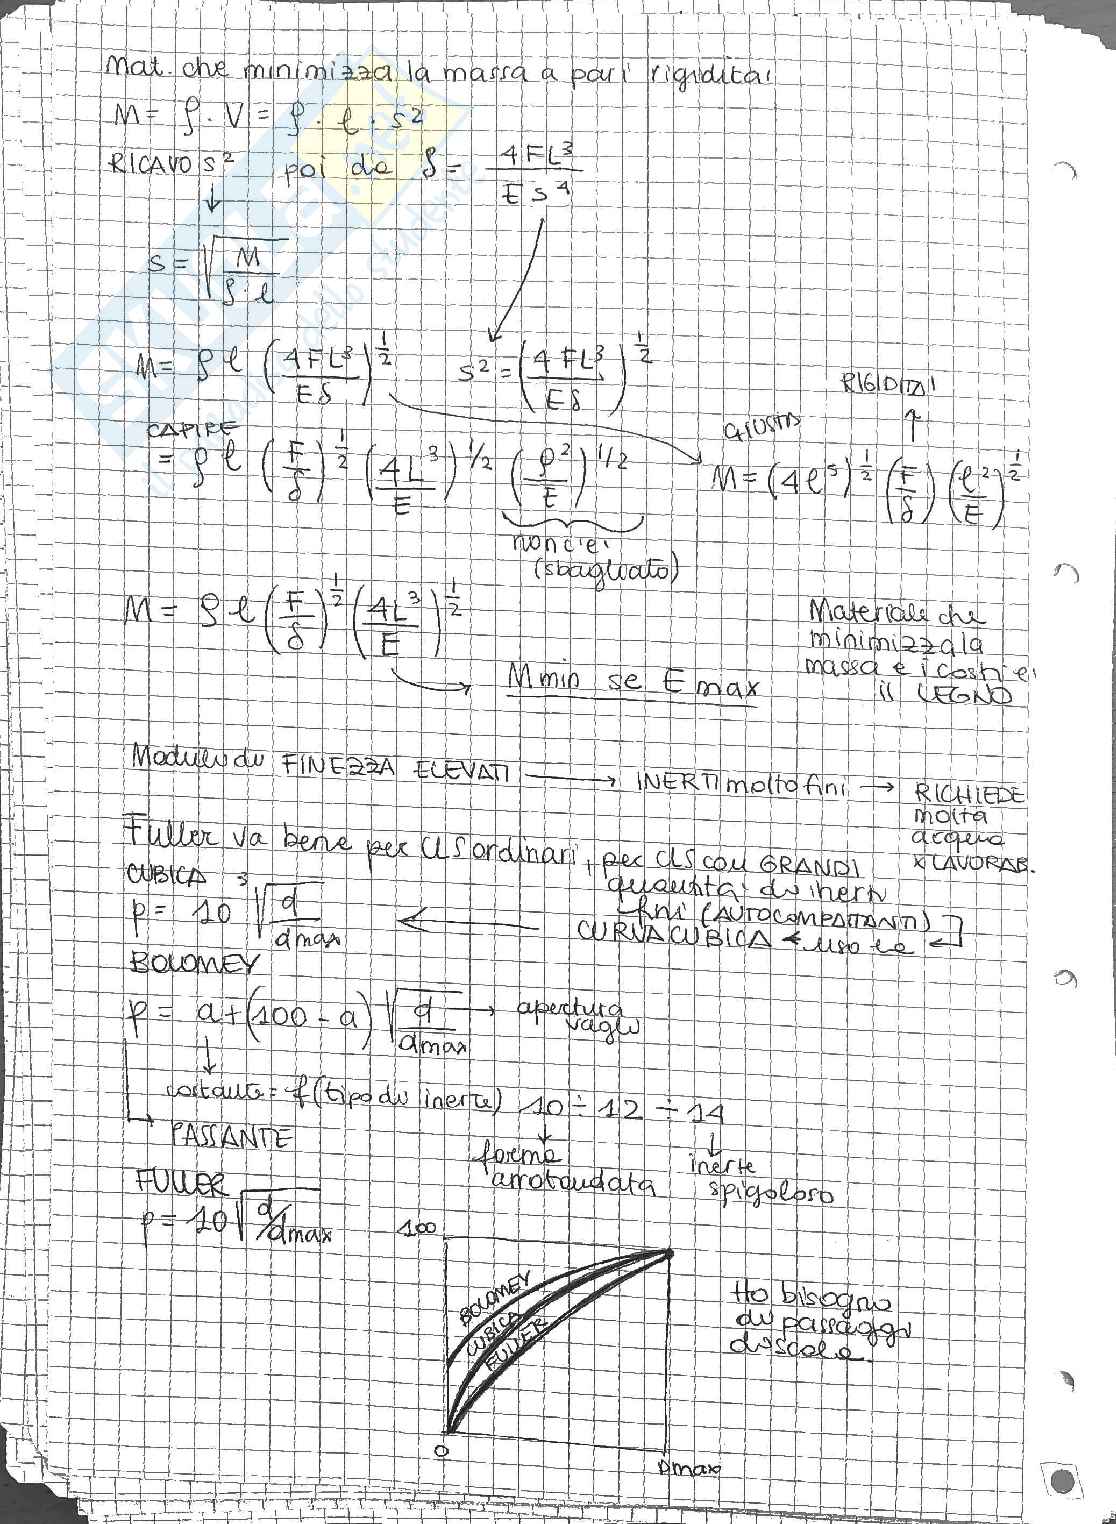 Mat. che minimizza la massa a pari rigidita'
M = ρ · V = ρ l · s²
RICAVO s² poi da δ = 4FL³ / E s⁴
s = √(M / ρ l)
M = ρ l (4FL³ / Eδ)^1/2 s² = (4FL³ / Eδ)^1/2
RIGIDITA'
CAPIRE
GIUSTA
= ρ l (F/δ)^1/2 (4L³/E)^1/2 (ρ²/E)^1/2
M = (4l⁵)^1/2 (F/δ) (ρ²/E)^1/2
non c'e'
(sbagliato)
M = ρ l (F/δ)^1/2 (4L³/E)^1/2
Materiale che
minimizza la
massa e i costi e'
il LEGNO
M min se E max
Modulo di FINEZZA ELEVATI → INERTI molto fini → RICHIEDE
molta
acqua
x LAVORAB.
Fuller va bene per CLS ordinari, per CLS con GRANDI
quantita' di inerti
fini (AUTOCOMPATTANTI)
CURVA CUBICA ← uso la
CUBICA
p = 10 ³√(d / dmax)
BOLOMEY
p = a + (100 - a) √(d / dmax) → apertura
vaglio
costante = f (tipo di inerte) 10 ÷ 12 ÷ 14
PASSANTE
forma
arrotondata
inerte
spigoloso
FULLER
p = 10 √(d/dmax)
100
BOLOMEY
CUBICA
FULLER
0
Dmax
Ho bisogno
di passaggi
di scala.